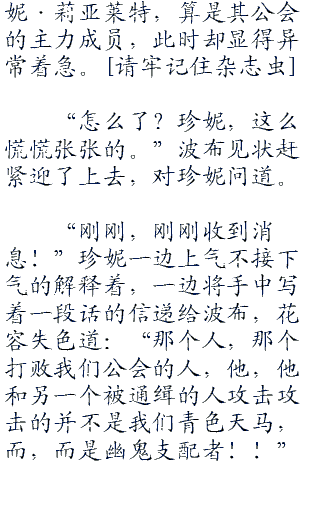 妮·莉亚莱特，算是其公会
的主力成员，此时却显得异
常着急。[请牢记住杂志虫]
“怎么了？珍妮，这么
慌慌张张的。”波布见状赶
紧迎了上去，对珍妮问道。
“刚刚，刚刚收到消
息！”珍妮一边上气不接下
气的解释着，一边将手中写
着一段话的信递给波布，花
容失色道：“那个人，那个
打败我们公会的人，他，他
和另一个被通缉的人攻击攻
击的并不是我们青色天马，
而，而是幽鬼支配者！！”